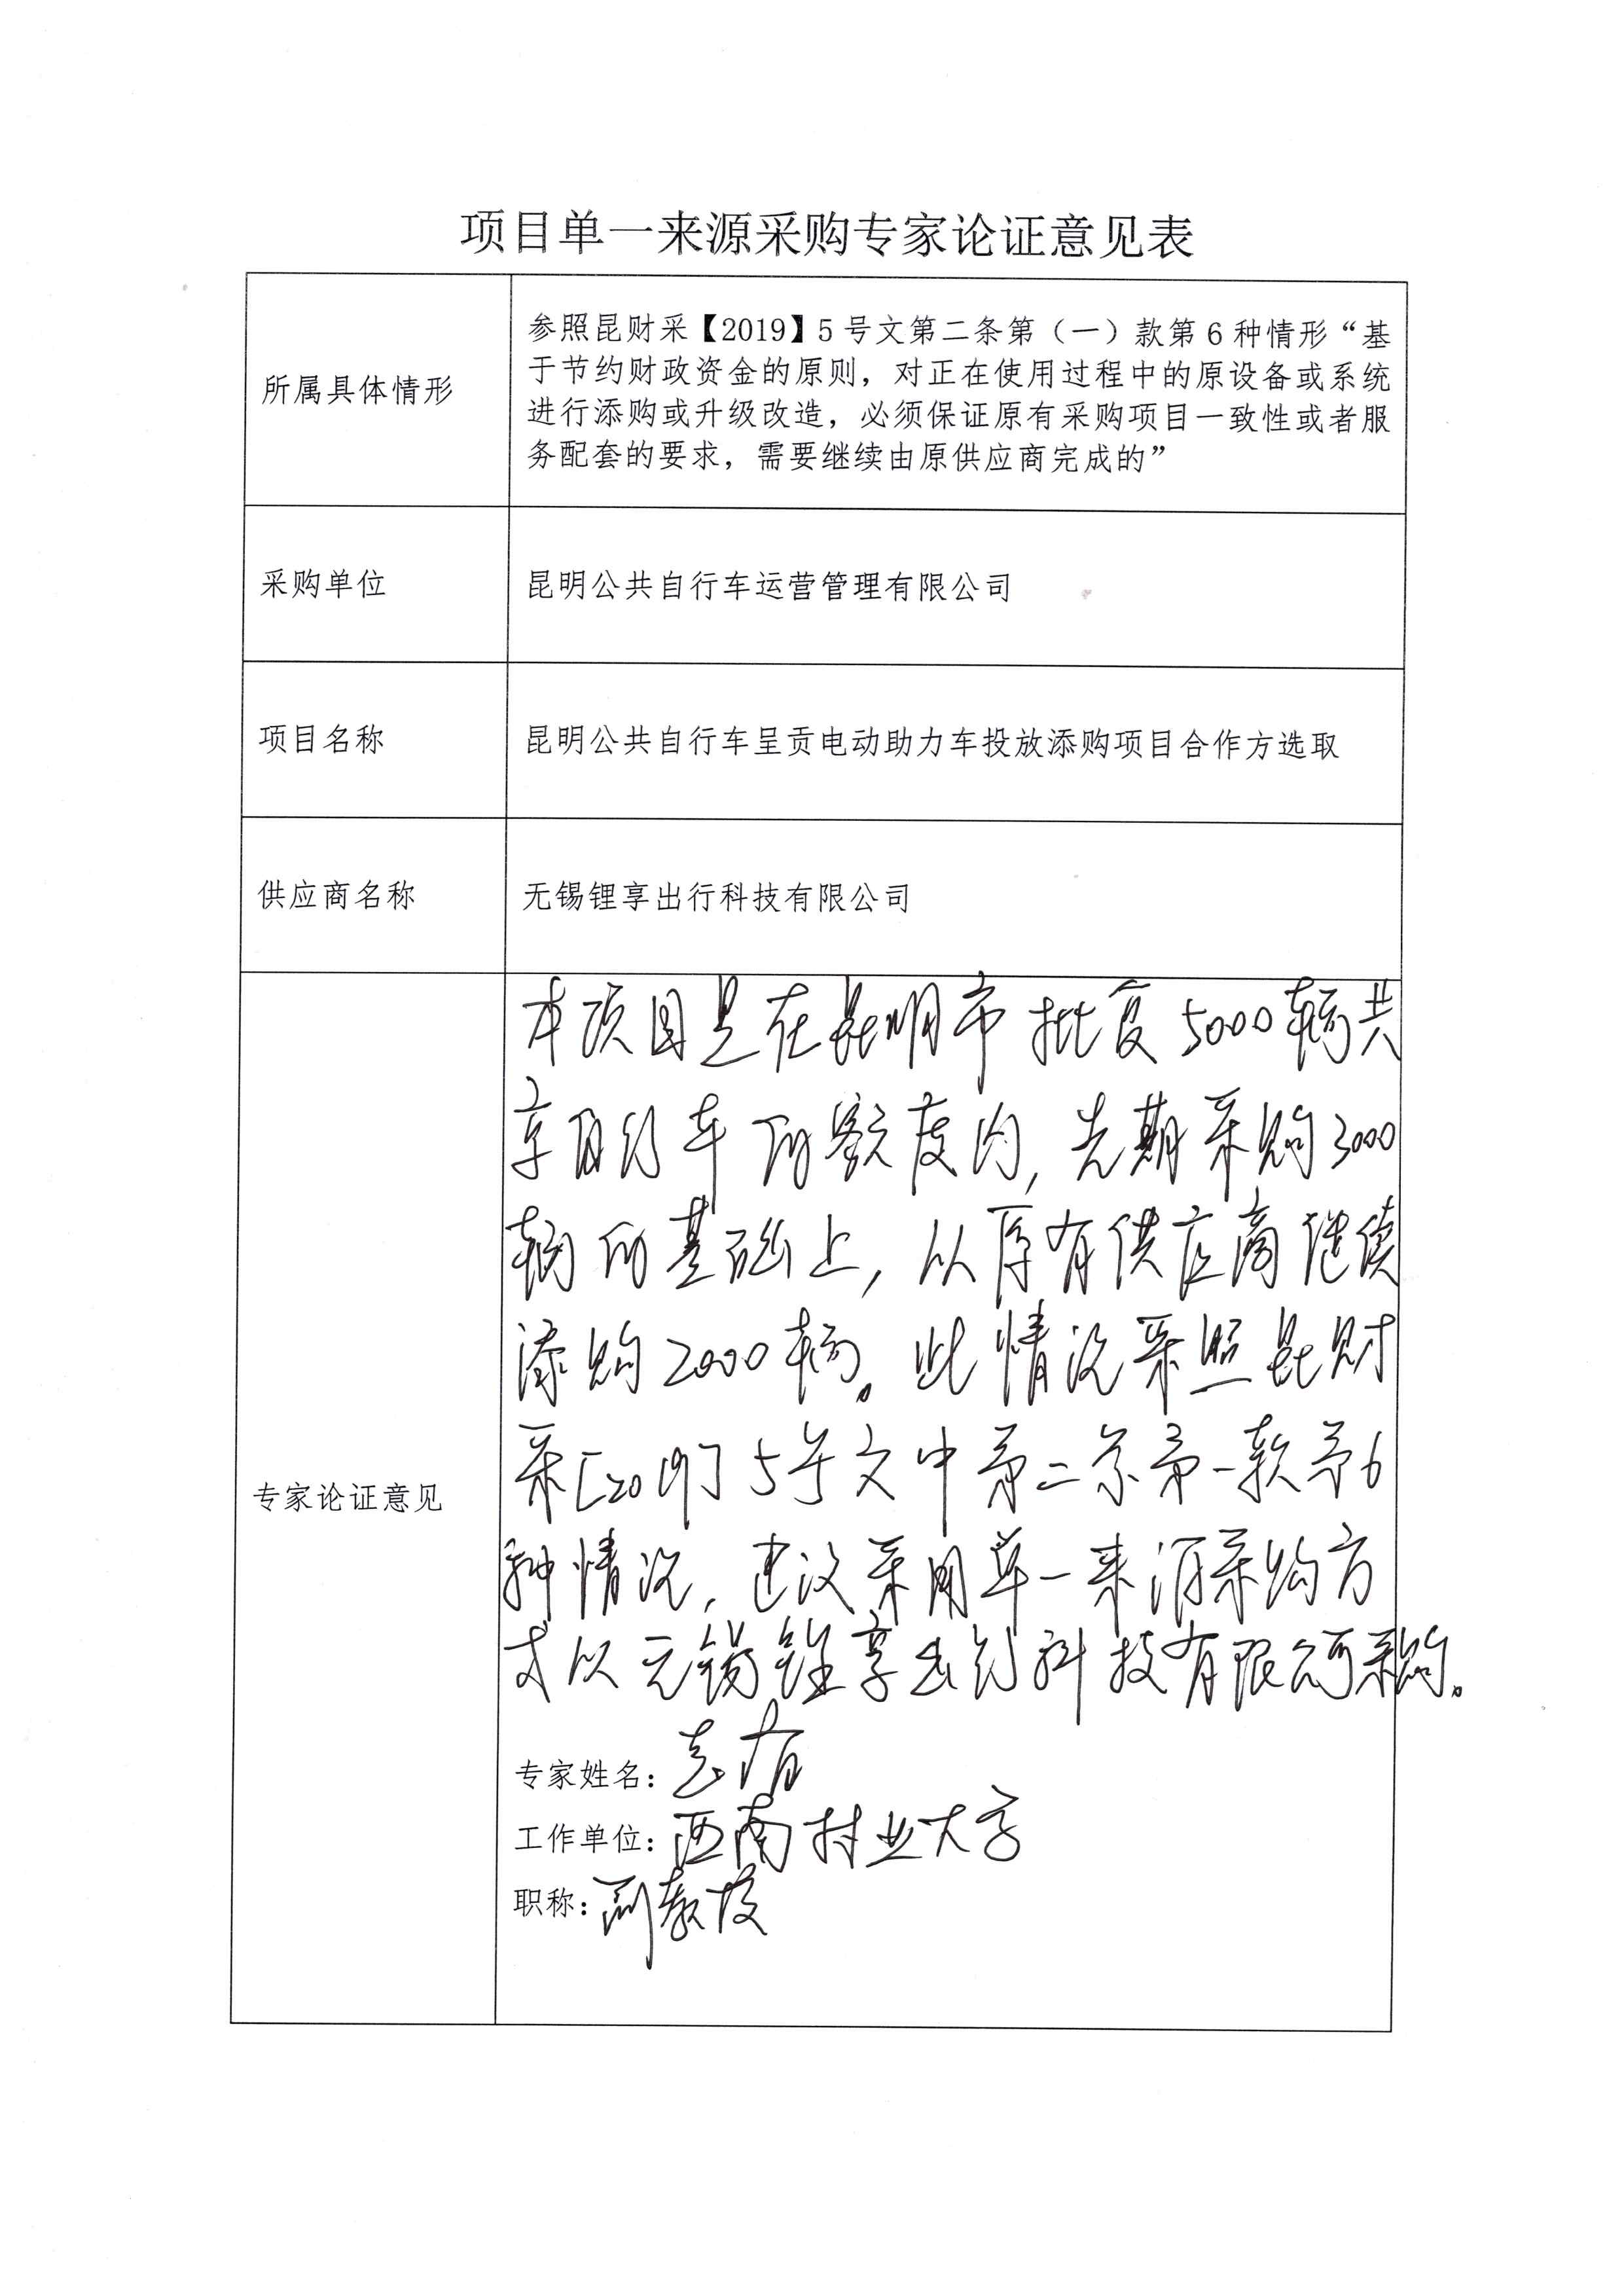 项目单一来源采购专家论证意见表
所属具体情形
参照昆财采【2019】5号文第二条第（一）款第6种情形“基
于节约财政资金的原则，对正在使用过程中的原设备或系统
进行添购或升级改造，必须保证原有采购项目一致性或者服
务配套的要求，需要继续由原供应商完成的”
采购单位
昆明公共自行车运营管理有限公司
项目名称
昆明公共自行车呈贡电动助力车投放添购项目合作方选取
供应商名称
无锡锂享出行科技有限公司
专家论证意见
本项目是在昆明市批复5000辆共
享自行车的额度内，先期采购3000
辆的基础上，从原有供应商继续
添购2000辆。此情况采照昆财
采[2019]5号文中第二条第一款第6
种情况，建议采用单一来源采购方
式从无锡锂享出行科技有限公司采购。
专家姓名：
工作单位：西南林业大学
职称：副教授